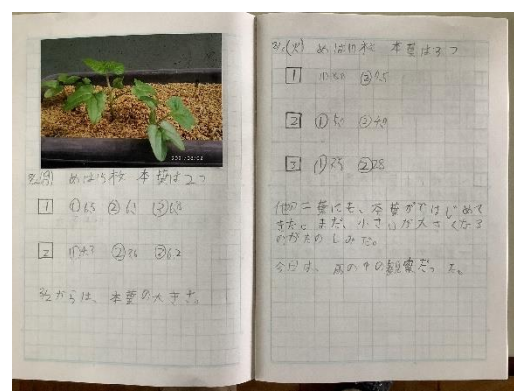 めは15枚 本葉は2つ
1 ①6.5 ②6.5 ③6.5
2 ①4.7 ②3.6 ③6.2
8/2からは、本葉の大きさ。
(火) めは17枚 本葉は3つ
1 ①8.0 ②9.5
2 ①5.0 ②4.0
3 ①2.5 ②2.8
他の二葉にも、本葉がではじめて
きた。まだ、小さいが大きくなる
のがたのしみだ。
今日は、雨の中の観察だった。